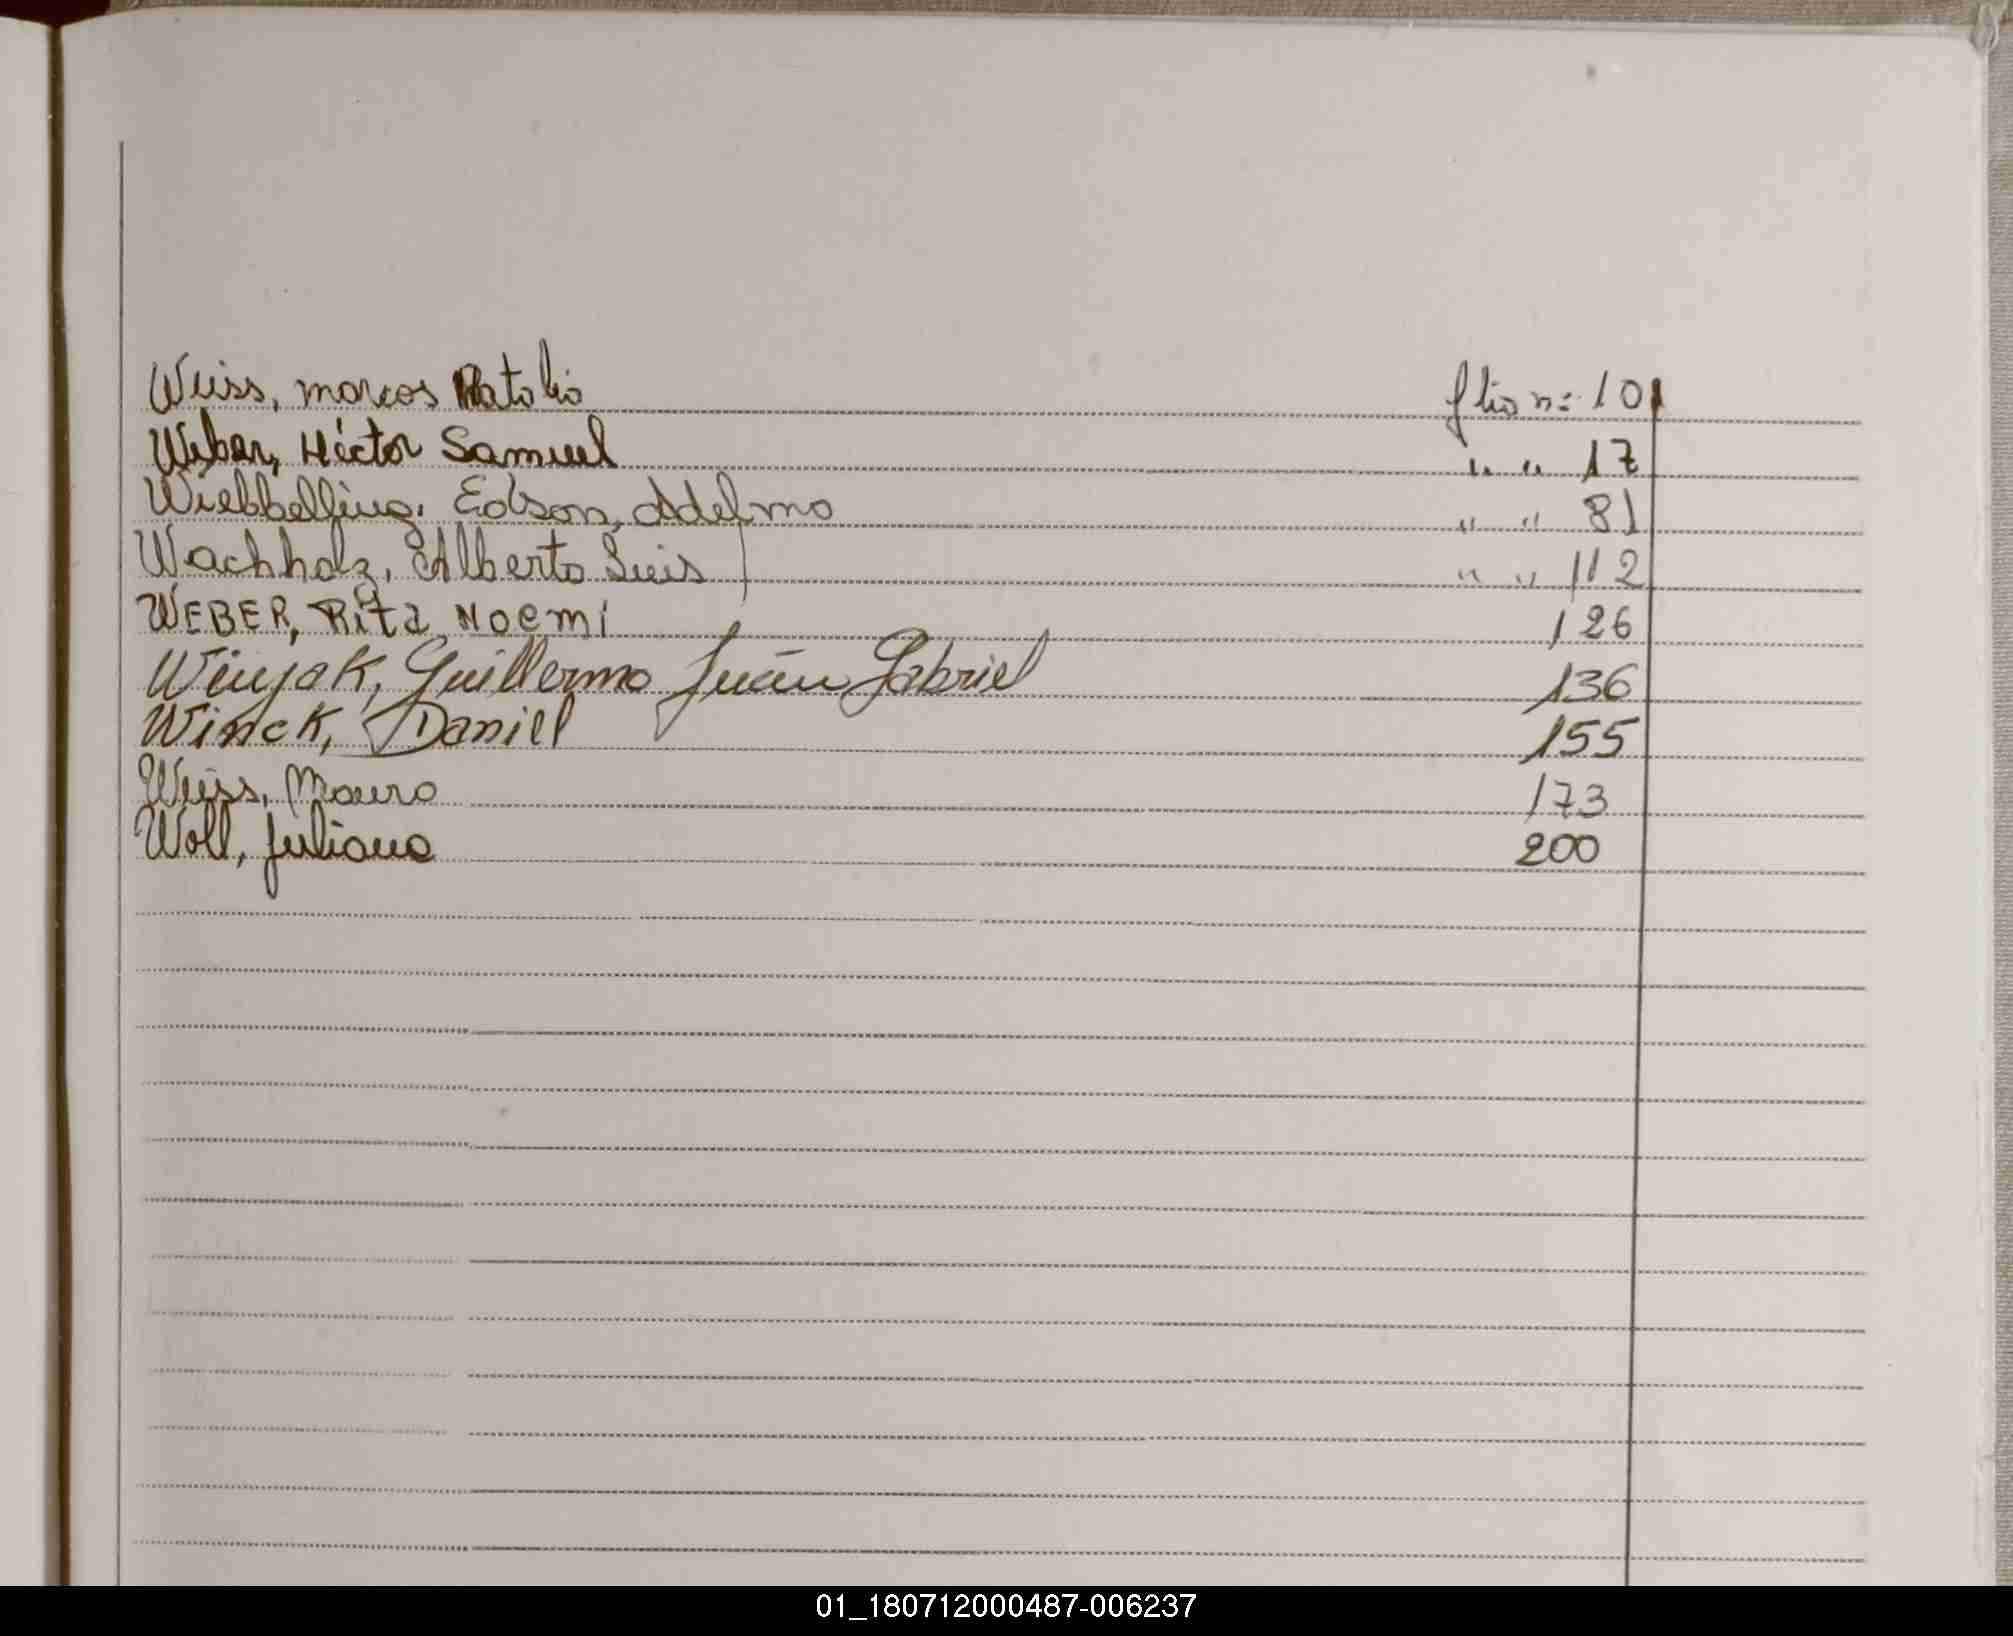 Weiss, Marcos Natalio folio nº 101
Weber, Héctor Samuel " " 17
Wiebbelling, Edson, Adelmo " " 81
Wachholz, Alberto Luis " " 112
WEBER, Rita Noemí 126
Winyok, Guillermo Juan Gabriel 136
Winck, Daniel 155
Weiss, Mauro 173
Woll, Juliana 200
01_180712000487-006237